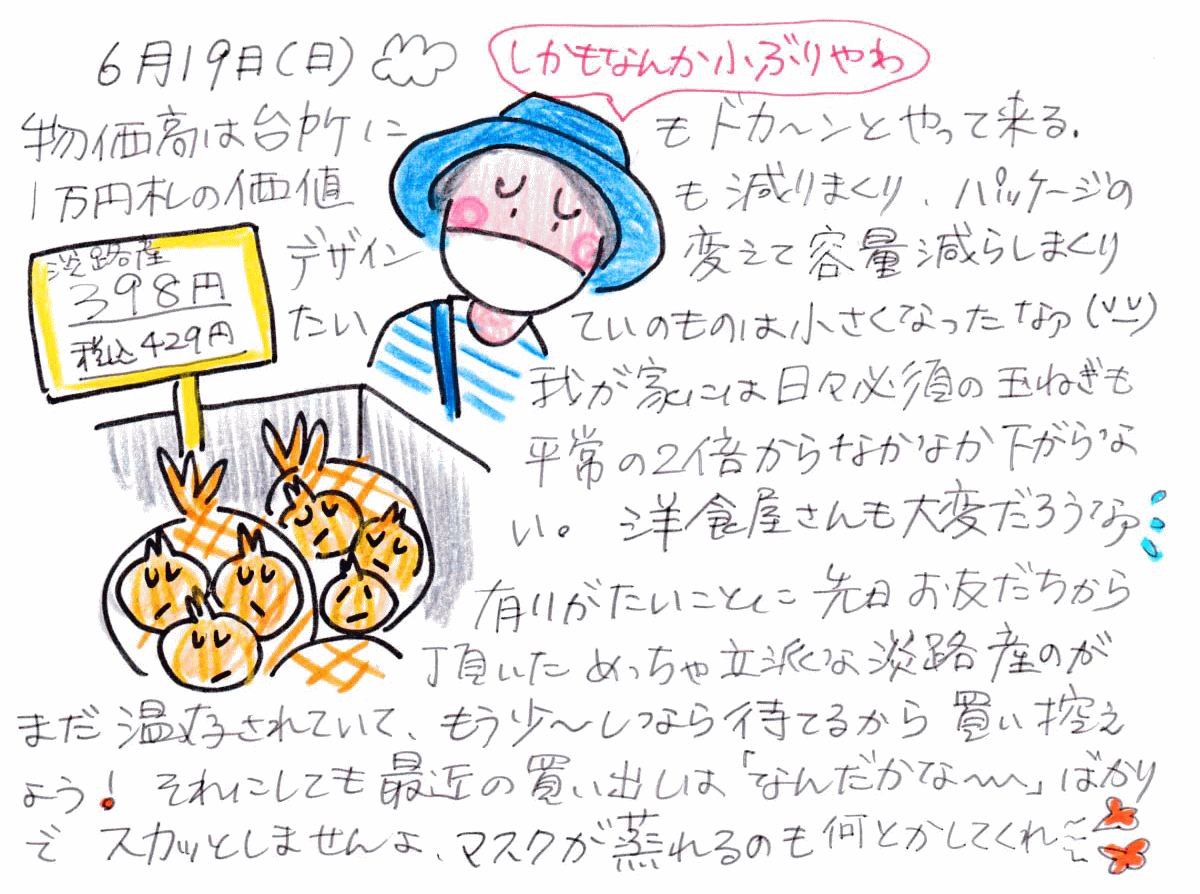 6月19日(日)
しかもなんか小ぶりやわ
物価高は台所にもドカ〜ンとやって来る.
1万円札の価値も減りまくり、パッケージの
デザイン変えて容量減らしまくり
たいていのものは小さくなったなァ
淡路産
398円
税込429円
我が家には日々必須の玉ねぎも
平常の2倍からなかなか下がらな
い。洋食屋さんも大変だろうなァ
有りがたいことに先日お友だちから
頂いためっちゃ立派な淡路産のが
まだ温存されていて、もう少〜しなら待てるから買い控え
よう!それにしても最近の買い出しは「なんだかな〜」ばかり
でスカッとしませんよ、マスクが蒸れるのも何とかしてくれ〜